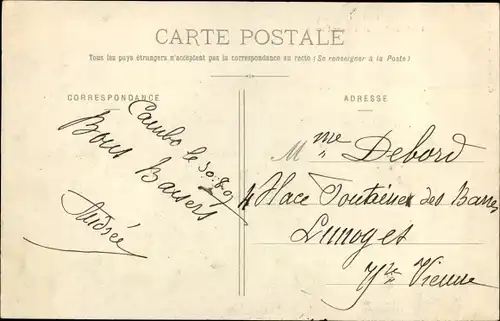 CARTE POSTALE
Tous les pays étrangers n'acceptent pas la correspondance au recto (Se renseigner à la Poste)
CORRESPONDANCE
Cambo le 30.8.09
Bons Baisers
Andrée
ADRESSE
Mme Debord
4 Place Fontaine des Barres
Limoges
Hte Vienne